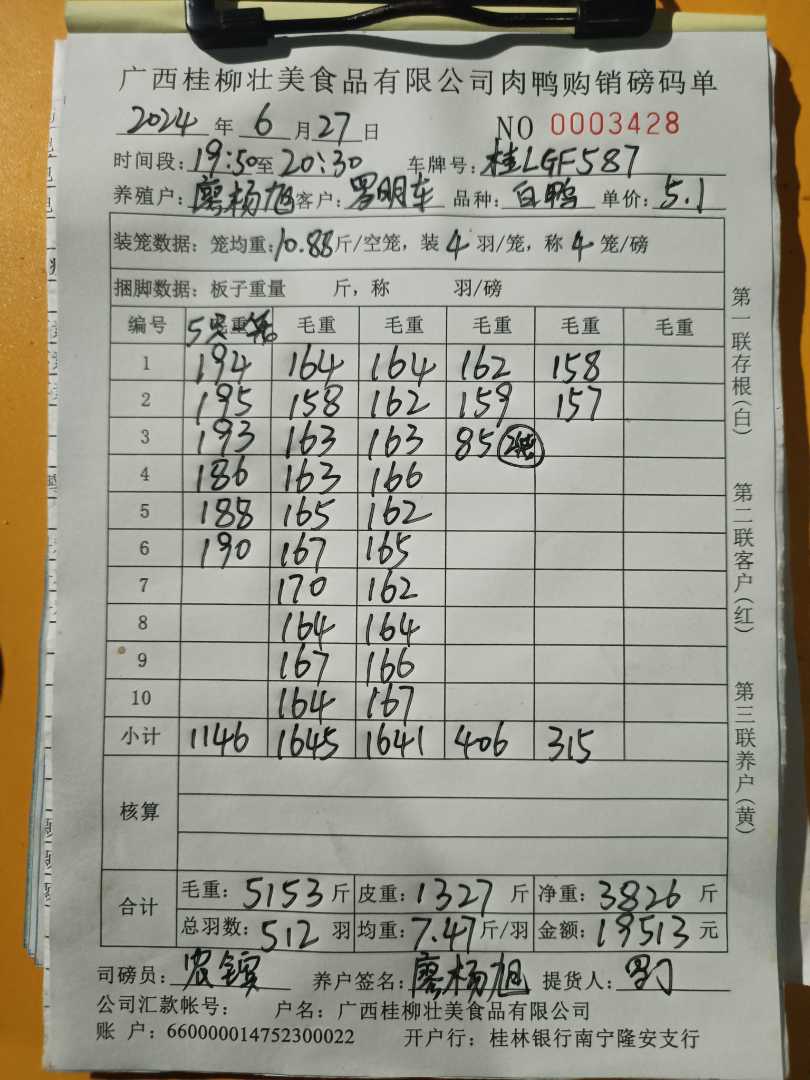 广西桂柳壮美食品有限公司肉鸭购销磅码单
2024 年 6 月 27 日 NO 0003428
时间段: 19:50 至 20:30 车牌号: 桂LGF587
养殖户: 廖杨旭 客户: 罗明车 品种: 白鸭 单价: 5.1
装笼数据: 笼均重: 10.88 斤/空笼, 装 4 羽/笼, 称 4 笼/磅
捆脚数据: 板子重量 斤, 称 羽/磅
编号 毛重 毛重 毛重 毛重 毛重 毛重
1 194 164 164 162 158
2 195 158 162 159 157
3 193 163 163 85
4 186 163 166
5 188 165 162
6 190 167 165
7 170 162
8 164 164
9 167 166
10 164 167
小计 1146 1645 1641 406 315
核算
合计 毛重: 5153 斤 皮重: 1327 斤 净重: 3826 斤
总羽数: 512 羽 均重: 7.47 斤/羽 金额: 19513 元
司磅员: 养户签名: 廖杨旭 提货人:
公司汇款帐号: 户名: 广西桂柳壮美食品有限公司
账 户: 660000014752300022 开户行: 桂林银行南宁隆安支行
第一联存根(白)
第二联客户(红)
第三联养户(黄)